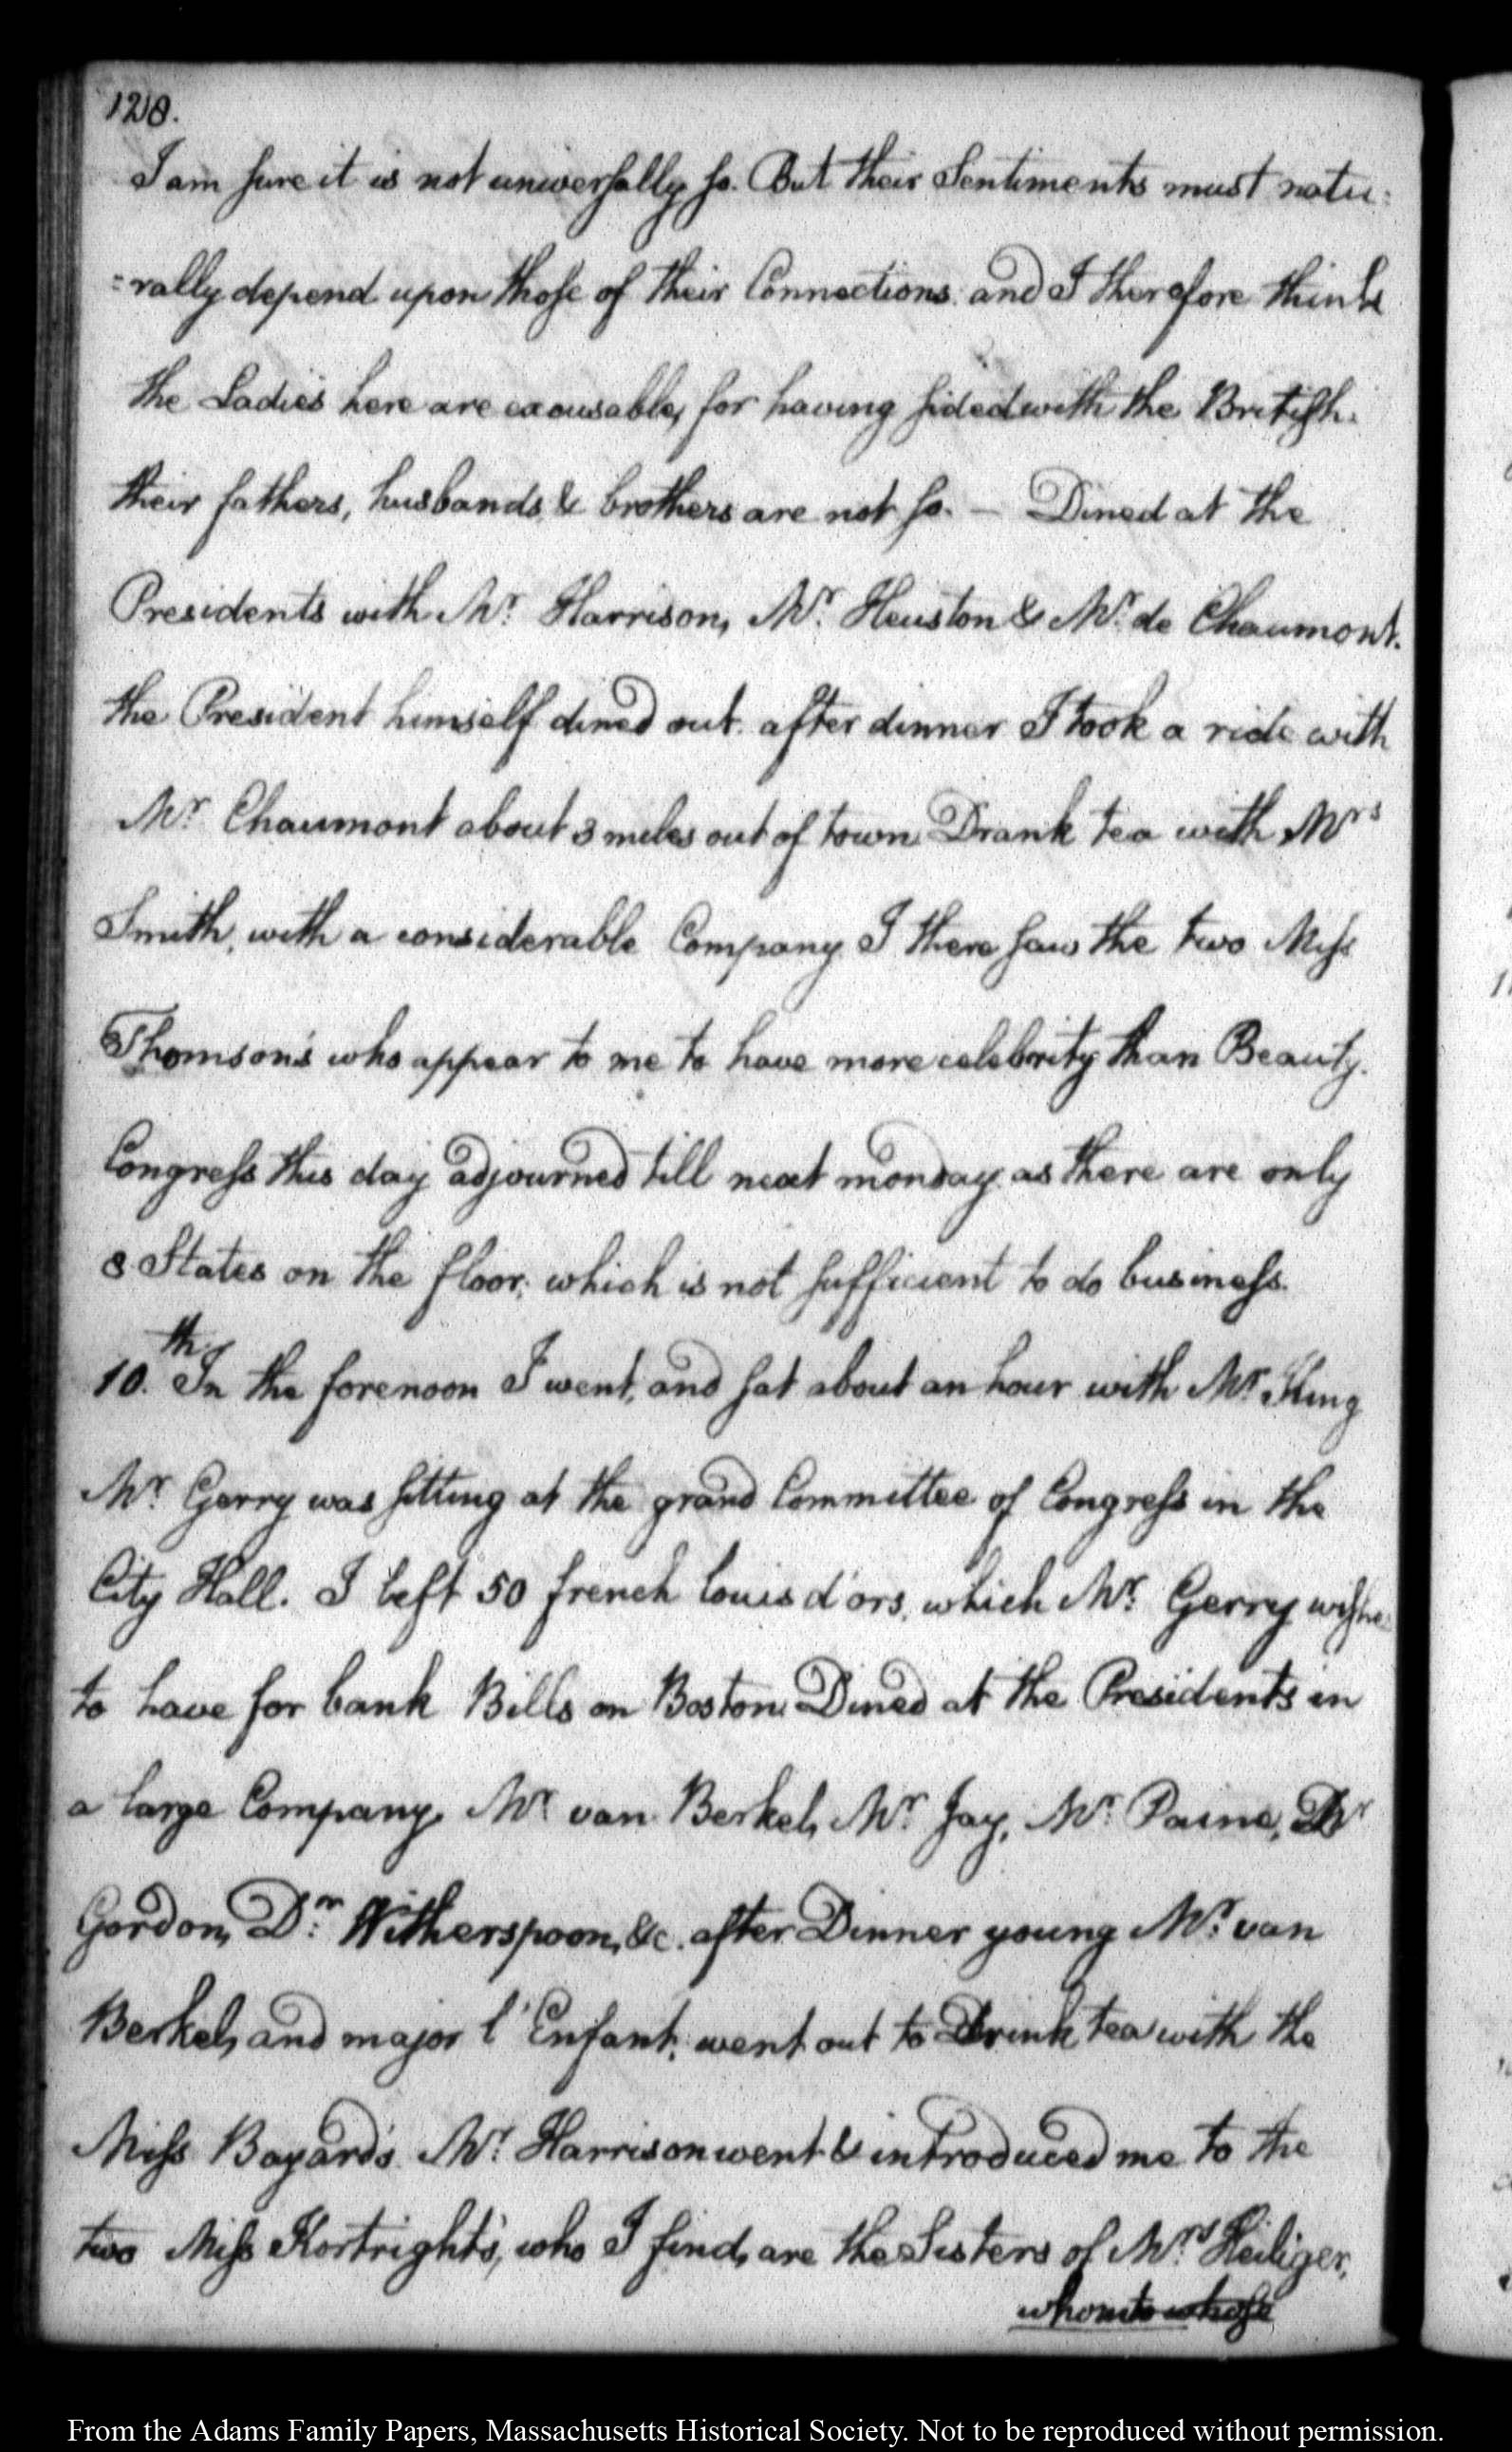 128.
I am sure it is not universally so. But their Sentiments must natu=
=rally depend upon those of their Connections. and I therefore think
the Ladies here are excusable, for having sided with the British.
their fathers, husbands, & brothers are not so. — Dined at the
Presidents with Mr. Harrison, Mr. Heuston & Mr. de Chaumont.
the President himself dined out. after dinner I took a ride with
Mr Chaumont about 3 miles out of town. Drank tea with Mrs
Smith, with a considerable Company. I there saw the two Miss
Thomson's who appear to me to have more celebrity than Beauty.
Congress this day adjourned till next monday. as there are only
8 States on the floor; which is not sufficient to do business.
10.th In the forenoon I went, and sat about an hour with Mr. King
Mr. Gerry was sitting at the grand Committee of Congress in the
City Hall. I left 50 french louis d'ors, which Mr. Gerry
to have for bank Bills on Boston. Dined at the Presidents in
a large Company, Mr. van Berkel, Mr Jay, Mr. Paine, Dr
Gordon, Dr. Witherspoon, &c. after Dinner young Mr. van
Berkel, and major l'Enfant, went out to Drink tea with the
Miss Bayard's. Mr. Harrison went & introduced me to the
two Miss Kortright's, who I find, are the Sisters of Mrs. Heiliger,
whom to whose
From the Adams Family Papers, Massachusetts Historical Society. Not to be reproduced without permission.